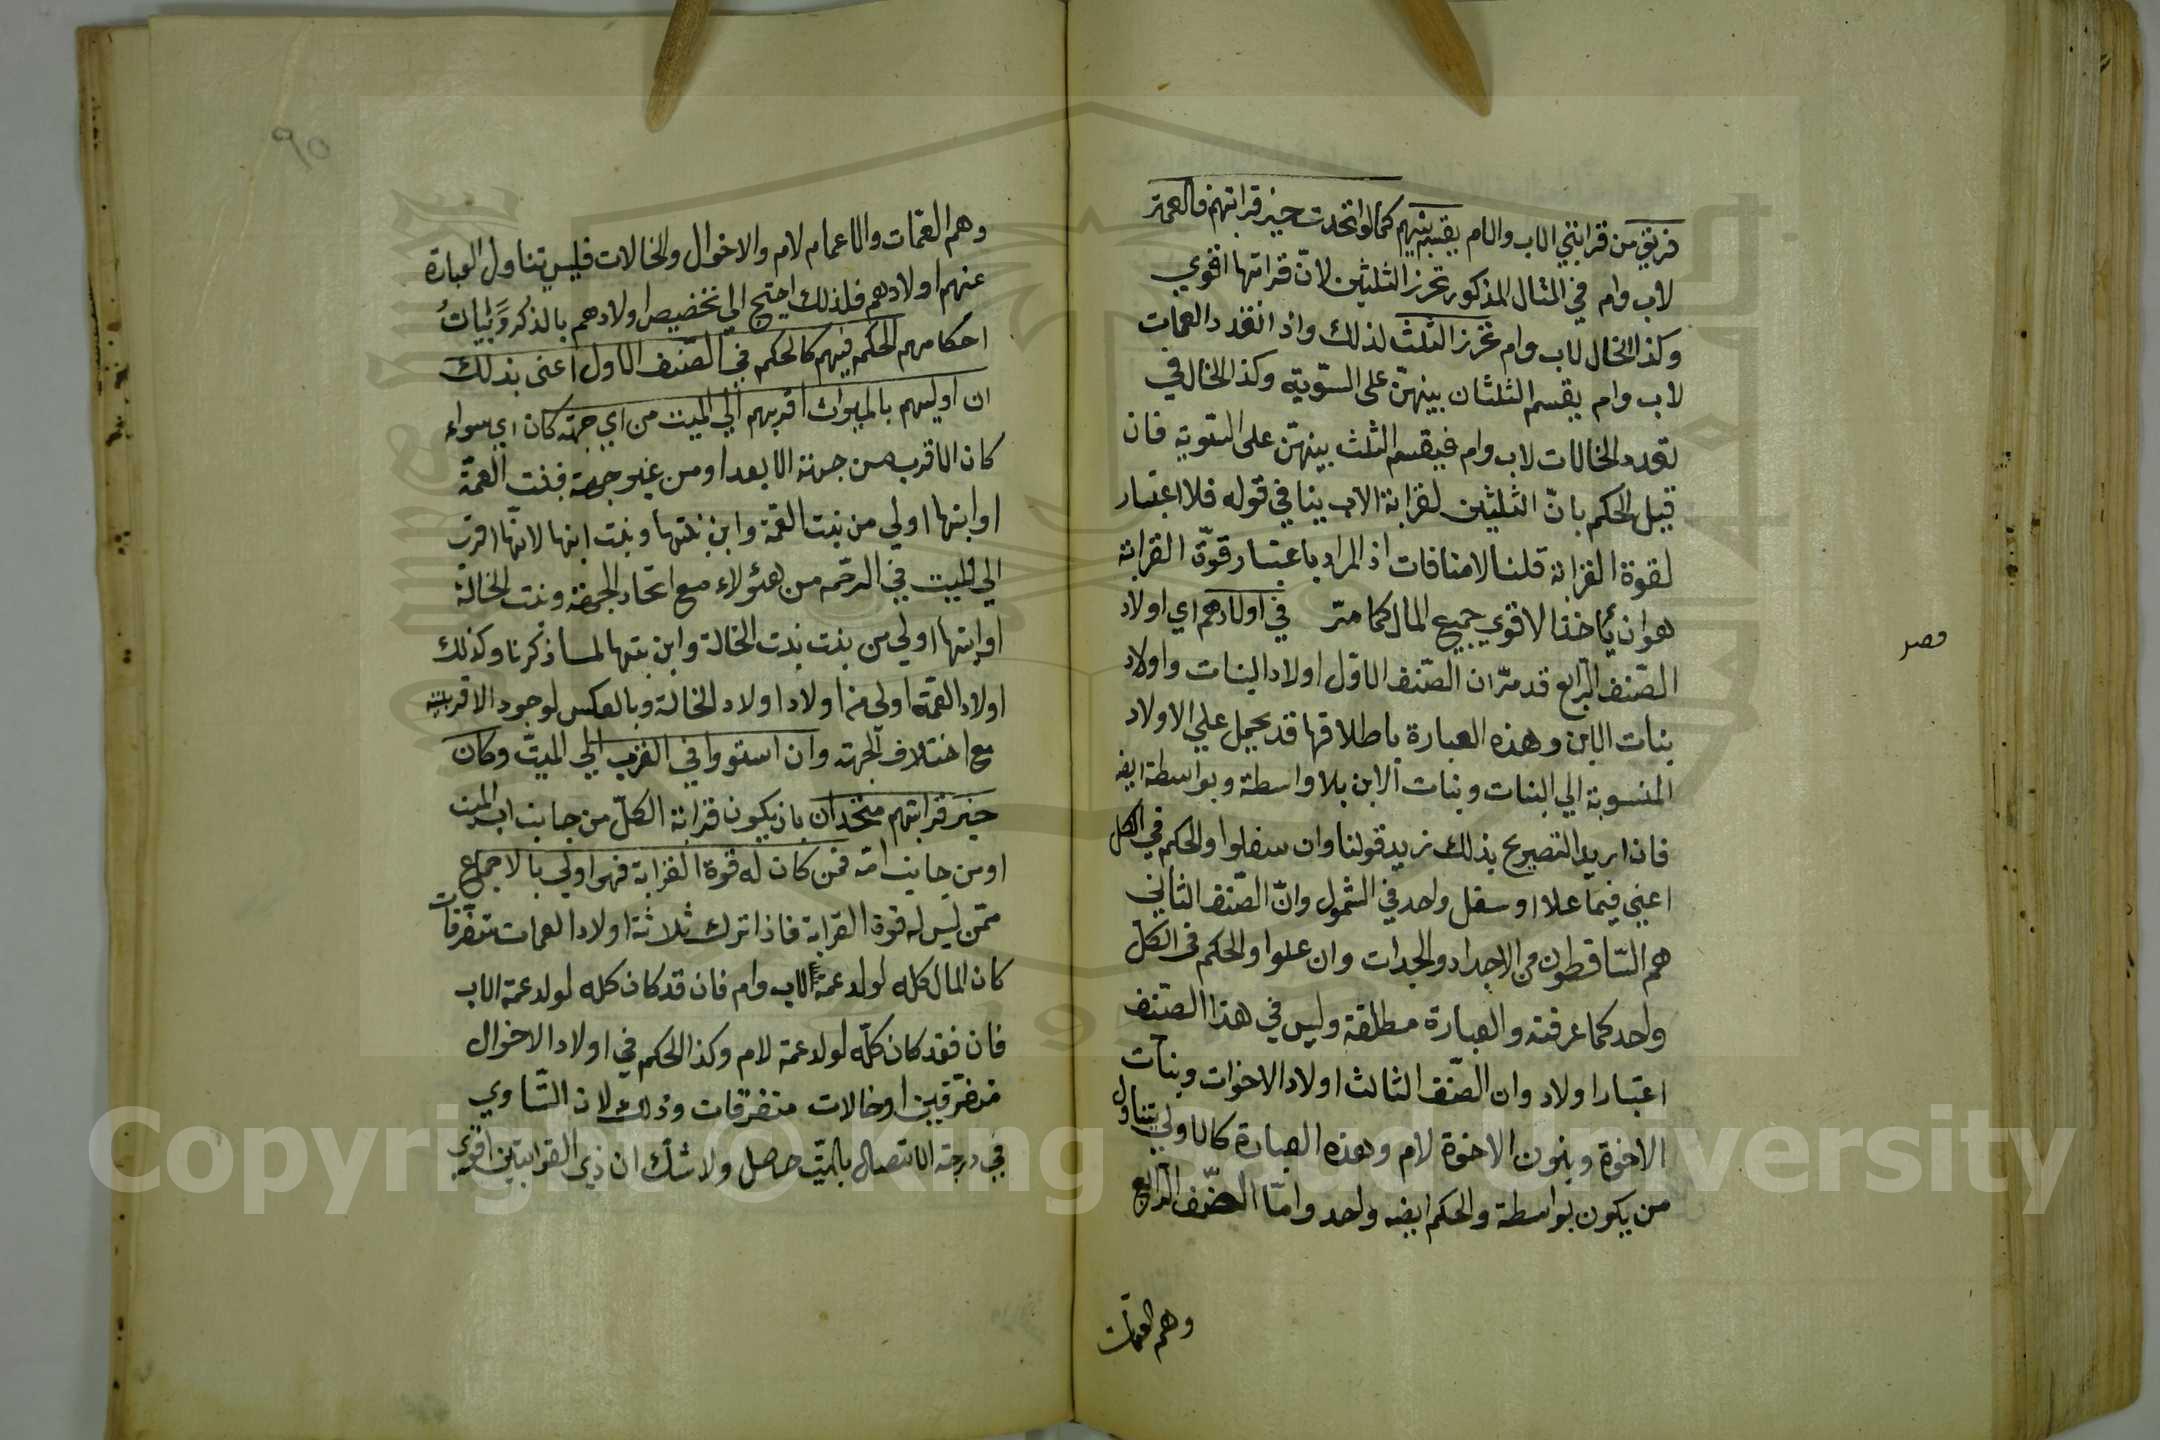 فريق من قرابتي الاب والام يقسم بينهم كما لو اتحدت حيز قرابتهم فالعمة
لاب وام في المثال المذكور تحرز الثلثين لانّ قرابتها اقوي
وكذا الخال لاب وام تحرز الثلث لذلك واذا انفرد العمات
لاب وام يقسم الثلثان بينهنّ على السّوية وكذا الخال في
تعدد الخالات لاب وام فيقسم الثلث بينهنّ على السّوية فان
قيل الحكم بانّ الثلثين لقرابة الاب ينافي قوله فلا اعتبار
لقوة القرابة قلنا لا منافات اذ المراد باعتبار قوّة القرابة
هو ان يأخذ الاقوي جميع المال كما مرّ في اولادهم اي اولاد
الصّنف الرّابع قد مرّ ان الصّنف الاوّل اولاد البنات واولاد
بنات الابن وهذه العبارة باطلاقها قد يحمل علي الاولاد
المنسوبة الي البنات وبنات الابن بلا واسطة وبواسطة ايضه
فان اريد التصريح بذلك نزيد قولنا وان سفلوا والحكم في الكل
اعني فيما علا او سفل واحد في الشمول وانّ الصّنف الثاني
هم السّاقطون من الاجداد والجدات وان علوا والحكم في الكلّ
واحد كما عرفته والعبارة مطلقة وليس في هذا الصّنف
اعتبار اولاد وان الصّنف الثالث اولاد الاخوات وبنات
الاخوة وبنون الاخوة لام وهذه العبارة كالاولي تتناول
من يكون بواسطة والحكم ايضه واحد وامّا الصّنف الرّابع
وهم العمات
قصر
٩٥
وهم العمّات والاعمام لام والاخوال والخالات فليس تناول العبارة
عنهم اولادهم فلذلك احتيج الي تخصيص اولادهم بالذكر وبيات
احكامهم الحكم فيهم كالحكم في الصّنف الاول اعنى بذلك
ان اوليهم بالميراث اقربهم الي الميت من اي جهة كان اي سواء
كان الاقرب من جهة الابعد او من غير جهة فبنت العمّة
او ابنها اولي من بنت العمّة وابن بنتها وبنت ابنها لانّها اقرب
الي الميت في الرحم من هؤلاء مع اتحاد الجهة وبنت الخالة
او ابنها اولي من بنت بنت الخالة وابن بنتها لما ذكرنا وكذلك
اولاد العمّة اولى من اولاد اولاد الخالة وبالعكس لوجود الاقربيّة
مع اختلاف الجهة وان استووا في القرب الي الميّت وكان
حيز قرابتهم متحدان بان يكون قرابة الكلّ من جانب اب الميت
او من جانب امّه فمن كان له قوة القرابة فهو اولي بالاجماع
ممّن ليس له قوة القرابة فاذا ترك ثلاثة اولاد العمات متفرقات
كان المال كله لولد عمة لاب وام فان فقد كان كله لولد عمة الاب
فان فقد كان كلّه لولد عمة لام وكذا الحكم في اولاد الاخوال
متفرّقين او خالات متفرّقات وذلك لان التّساوي
في درجة الاتصال بالميّت حاصل ولا شكّ ان ذي القرابتين اقوي
Copyright © King Saud University